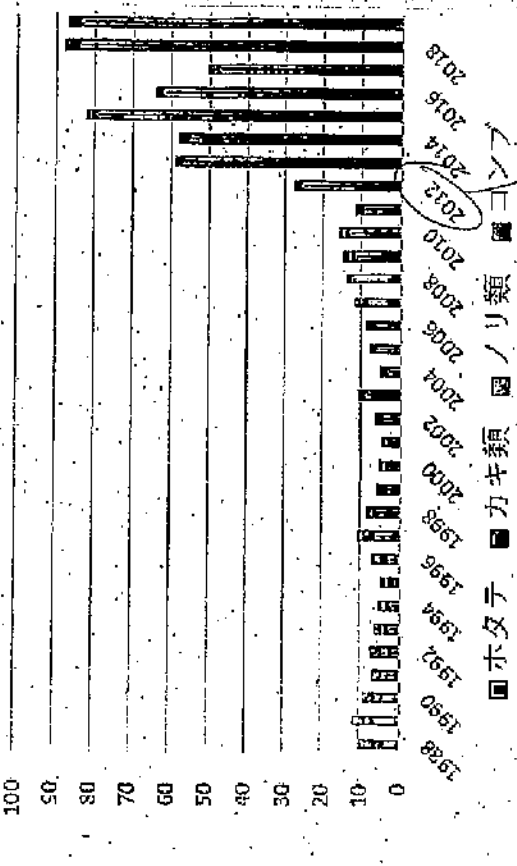 100
90
80
70
60
50
40
30
20
10
0
1988 1990 1992 1994 1996 1998 2000 2002 2004 2006 2008 2010 2012 2014 2016 2018
ホタテ カキ類 ノリ類 コンブ